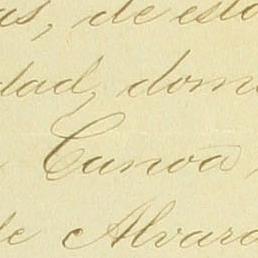 as, de esto
dad, domi
Canoa
de Alvara